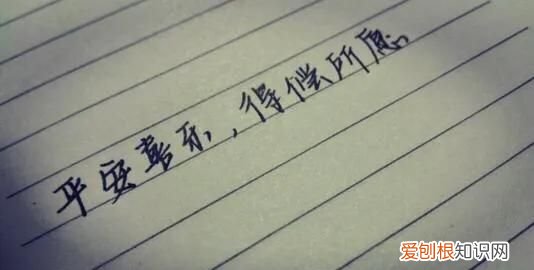 平安喜乐，得偿所愿。
爱刨根知识网